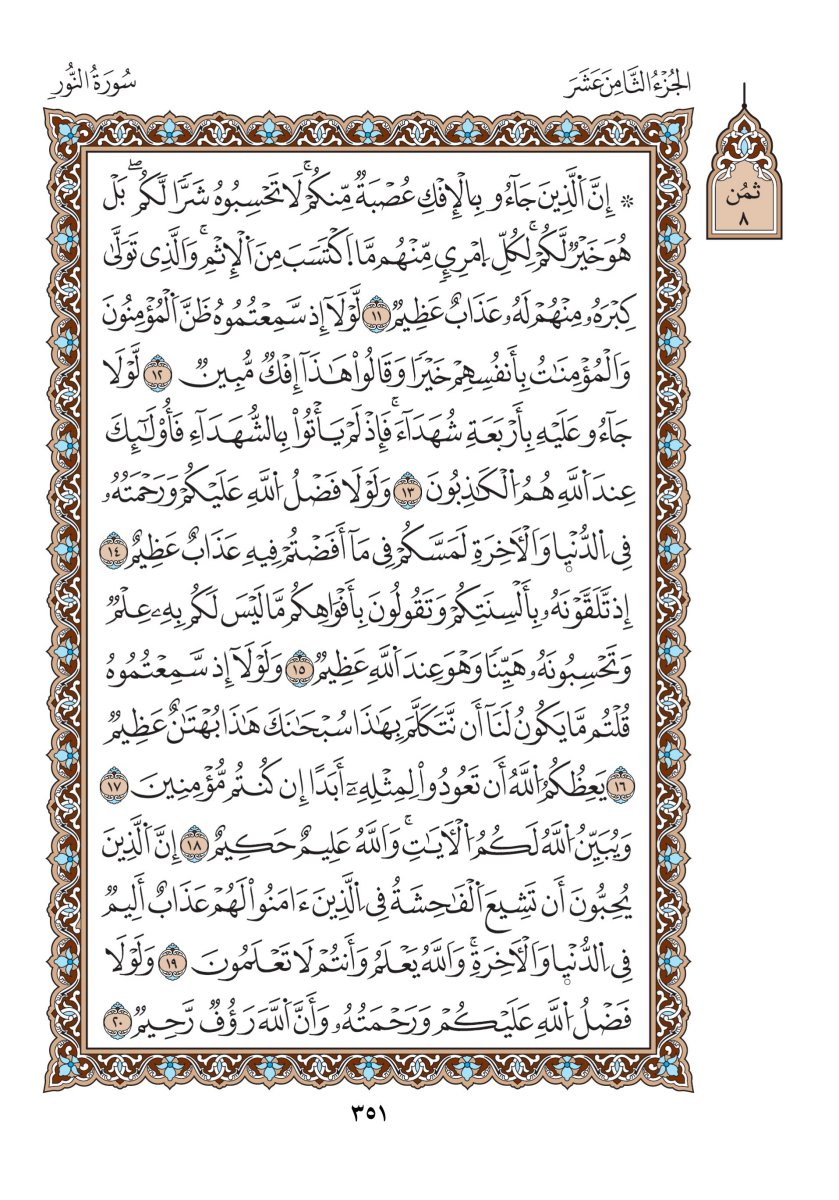 سُورَةُ النُّورِ
الجُزْءُ الثَّامِنَ عَشَرَ
ثُمُن
٨
۞ إِنَّ اَلَّذِينَ جَآءُو بِالْإِفْكِ عُصْبَةٌ مِّنكُمْۚ لَا تَحْسِبُوهُ شَرًّا لَّكُمۖ بَلْ
هُوَ خَيْرٌ لَّكُمْۚ لِكُلِّ اِمْرِيٕٖ مِّنْهُم مَّا اَكْتَسَبَ مِنَ اَلْإِثْمِۚ وَالَّذِى تَوَلَّىٰ
كِبْرَهُۥ مِنْهُمْ لَهُۥ عَذَابٌ عَظِيمٌ ١١ لَّوْلَآ إِذ سَّمِعْتُمُوهُ ظَنَّ اَلْمُؤْمِنُونَ
وَالْمُؤْمِنَٰتُ بِأَنفُسِهِمْ خَيْرًا وَقَالُواْ هَٰذَآ إِفْكٌ مُّبِينٌ ١٢ لَّوْلَا
جَآءُو عَلَيْهِ بِأَرْبَعَةِ شُهَدَآءَۚ فَإِذْ لَمْ يَأْتُواْ بِالشُّهَدَآءِ فَأُوْلَٰٓئِكَ
عِندَ اَللَّهِ هُمُ اُلْكَٰذِبُونَ ١٣ وَلَوْلَا فَضْلُ اُللَّهِ عَلَيْكُمْ وَرَحْمَتُهُۥ
فِى اِلدُّنْيَا وَالْأَخِرَةِ لَمَسَّكُمْ فِى مَآ أَفَضْتُمْ فِيهِ عَذَابٌ عَظِيمٌ ١٤
إِذ تَّلَقَّوْنَهُۥ بِأَلْسِنَتِكُمْ وَتَقُولُونَ بِأَفْوَاهِكُم مَّا لَيْسَ لَكُم بِهِۦ عِلْمٌ
وَتَحْسِبُونَهُۥ هَيِّنًا وَهْوَ عِندَ اَللَّهِ عَظِيمٌ ١٥ وَلَوْلَآ إِذ سَّمِعْتُمُوهُ
قُلْتُم مَّا يَكُونُ لَنَآ أَن نَّتَكَلَّمَ بِهَٰذَا سُبْحَٰنَكَ هَٰذَا بُهْتَٰنٌ عَظِيمٌ
١٦ يَعِظُكُمُ اُللَّهُ أَن تَعُودُواْ لِمِثْلِهِۦٓ أَبَدًا إِن كُنتُم مُّؤْمِنِينَ ١٧
وَيُبَيِّنُ اُللَّهُ لَكُمُ اُلْأَيَٰتِۚ وَاللَّهُ عَلِيمٌ حَكِيمٌ ١٨ إِنَّ اَلَّذِينَ
يُحِبُّونَ أَن تَشِيعَ اَلْفَٰحِشَةُ فِى اِلَّذِينَ ءَامَنُواْ لَهُمْ عَذَابٌ أَلِيمٌ
فِى اِلدُّنْيَا وَالْأَخِرَةِۚ وَاللَّهُ يَعْلَمُ وَأَنتُمْ لَا تَعْلَمُونَ ١٩ وَلَوْلَا
فَضْلُ اُللَّهِ عَلَيْكُمْ وَرَحْمَتُهُۥ وَأَنَّ اَللَّهَ رَؤُفٌ رَّحِيمٌ ٢٠
٣٥١